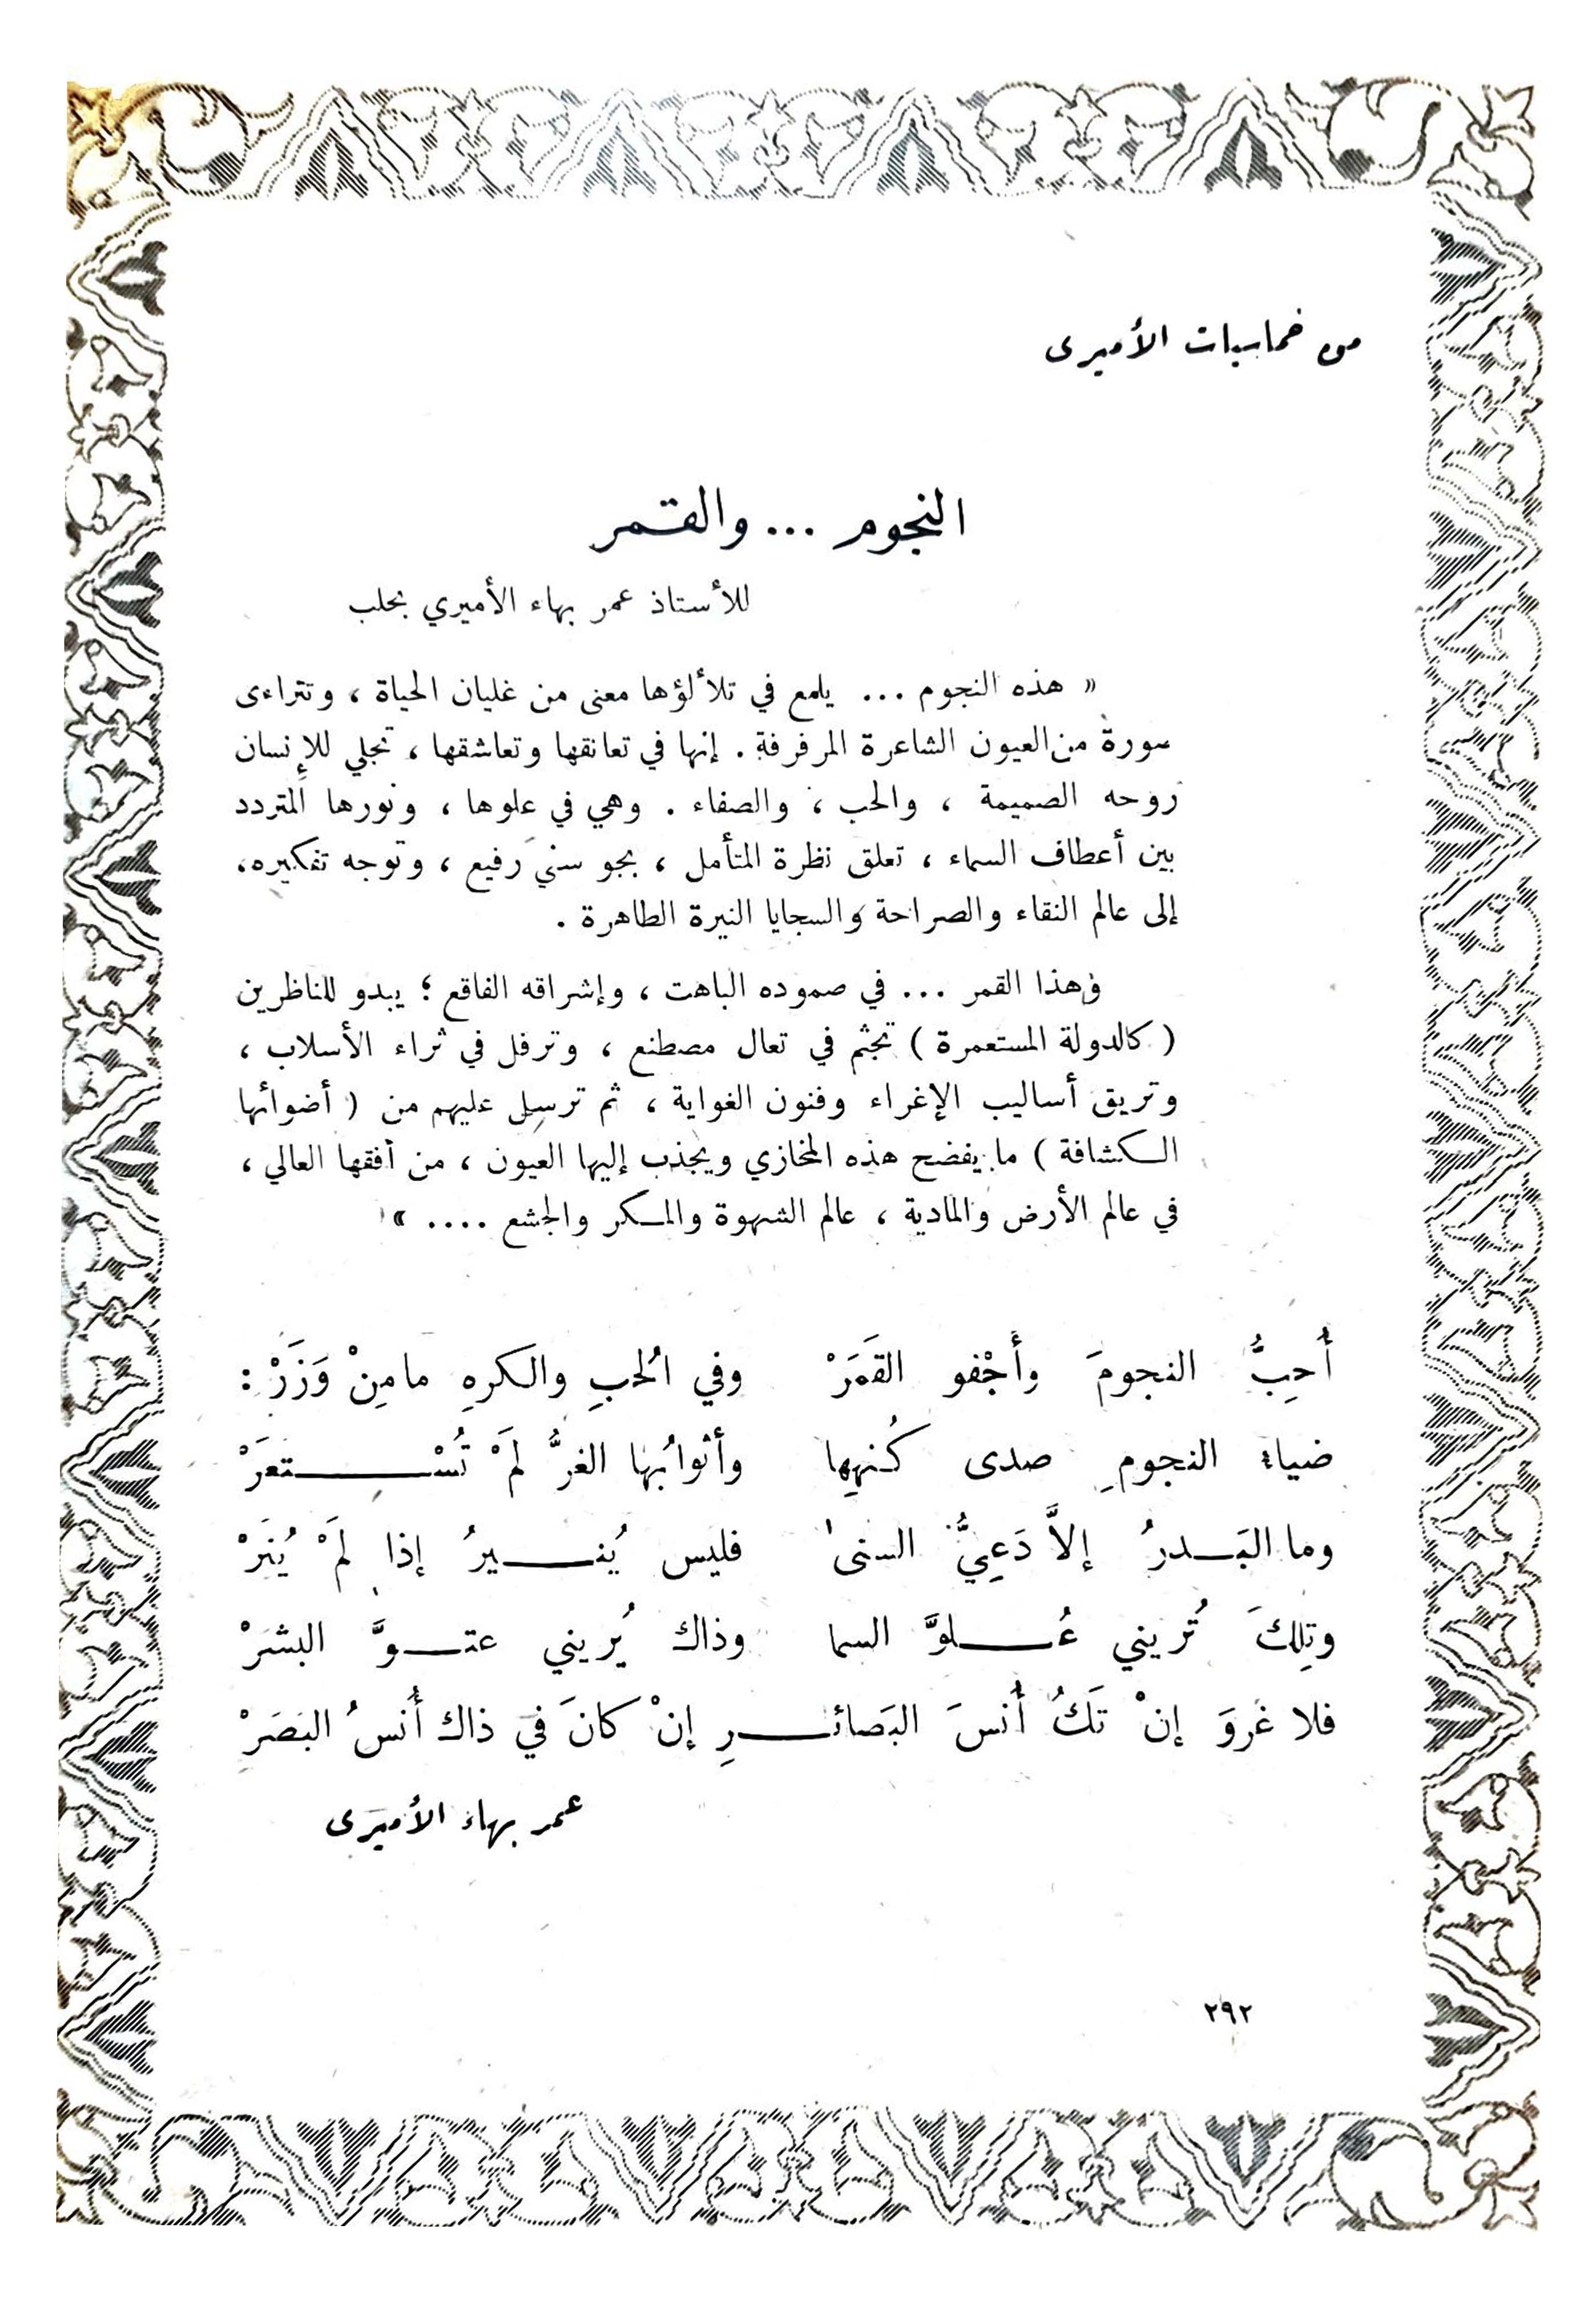 من خماسيات الأميرى
النجوم ... والقمر
للأستاذ عمر بهاء الأميري بحلب
« هذه النجوم ... يلمع في تلألؤها معنى من غليان الحياة ، وتتراءى
صورة من العيون الشاعرة المرفرفة . إنها في تعانقها وتعاشقها ، تجلي للإنسان
روحه الصميمة ، والحب ، والصفاء . وهي في علوها ، ونورها المتردد
بين أعطاف السماء ، تعلق نظرة المتأمل ، بجو سنيّ رفيع ، وتوجه تفكيره،
إلى عالم النقاء والصراحة والسجايا النيرة الطاهرة .
وهذا القمر ... في صموده الباهت ، وإشراقه الفاقع ؛ يبدو للناظرين
( كالدولة المستعمرة ) تجثم في تعال مصطنع ، وترفل في ثراء الأسلاب ،
وتريق أساليب الإغراء وفنون الغواية ، ثم ترسل عليهم من ( أضوائها
الكشافة ) ما يفضح هذه المخازي ويجذب إليها العيون ، من أفقها العالي ،
في عالم الأرض والمادية ، عالم الشهوة والمكر والجشع .... »
أُحِبُّ النجومَ وأَجْفو القَمَرْ وفي الُحبِ والكرهِ مامِنْ وَزَرْ :
ضياء النجومِ صدى كُنهِها وأثوابُها الغرُّ لَمْ تُسْتعَرْ
وما البَدرُ إلاَّ دَعِيُّ السنى فليس يُنيرُ إذا لَمْ يُنَرْ
وتِلكَ تُريني عُلوَّ السما وذاك يُريني عتوَّ البشرْ
فلا غَروَ إنْ تَكُ أُنسَ البَصائرِ إنْ كانَ في ذاك أُنسُ البَصَرْ
عمر بهاء الأميرى
٢٩٢